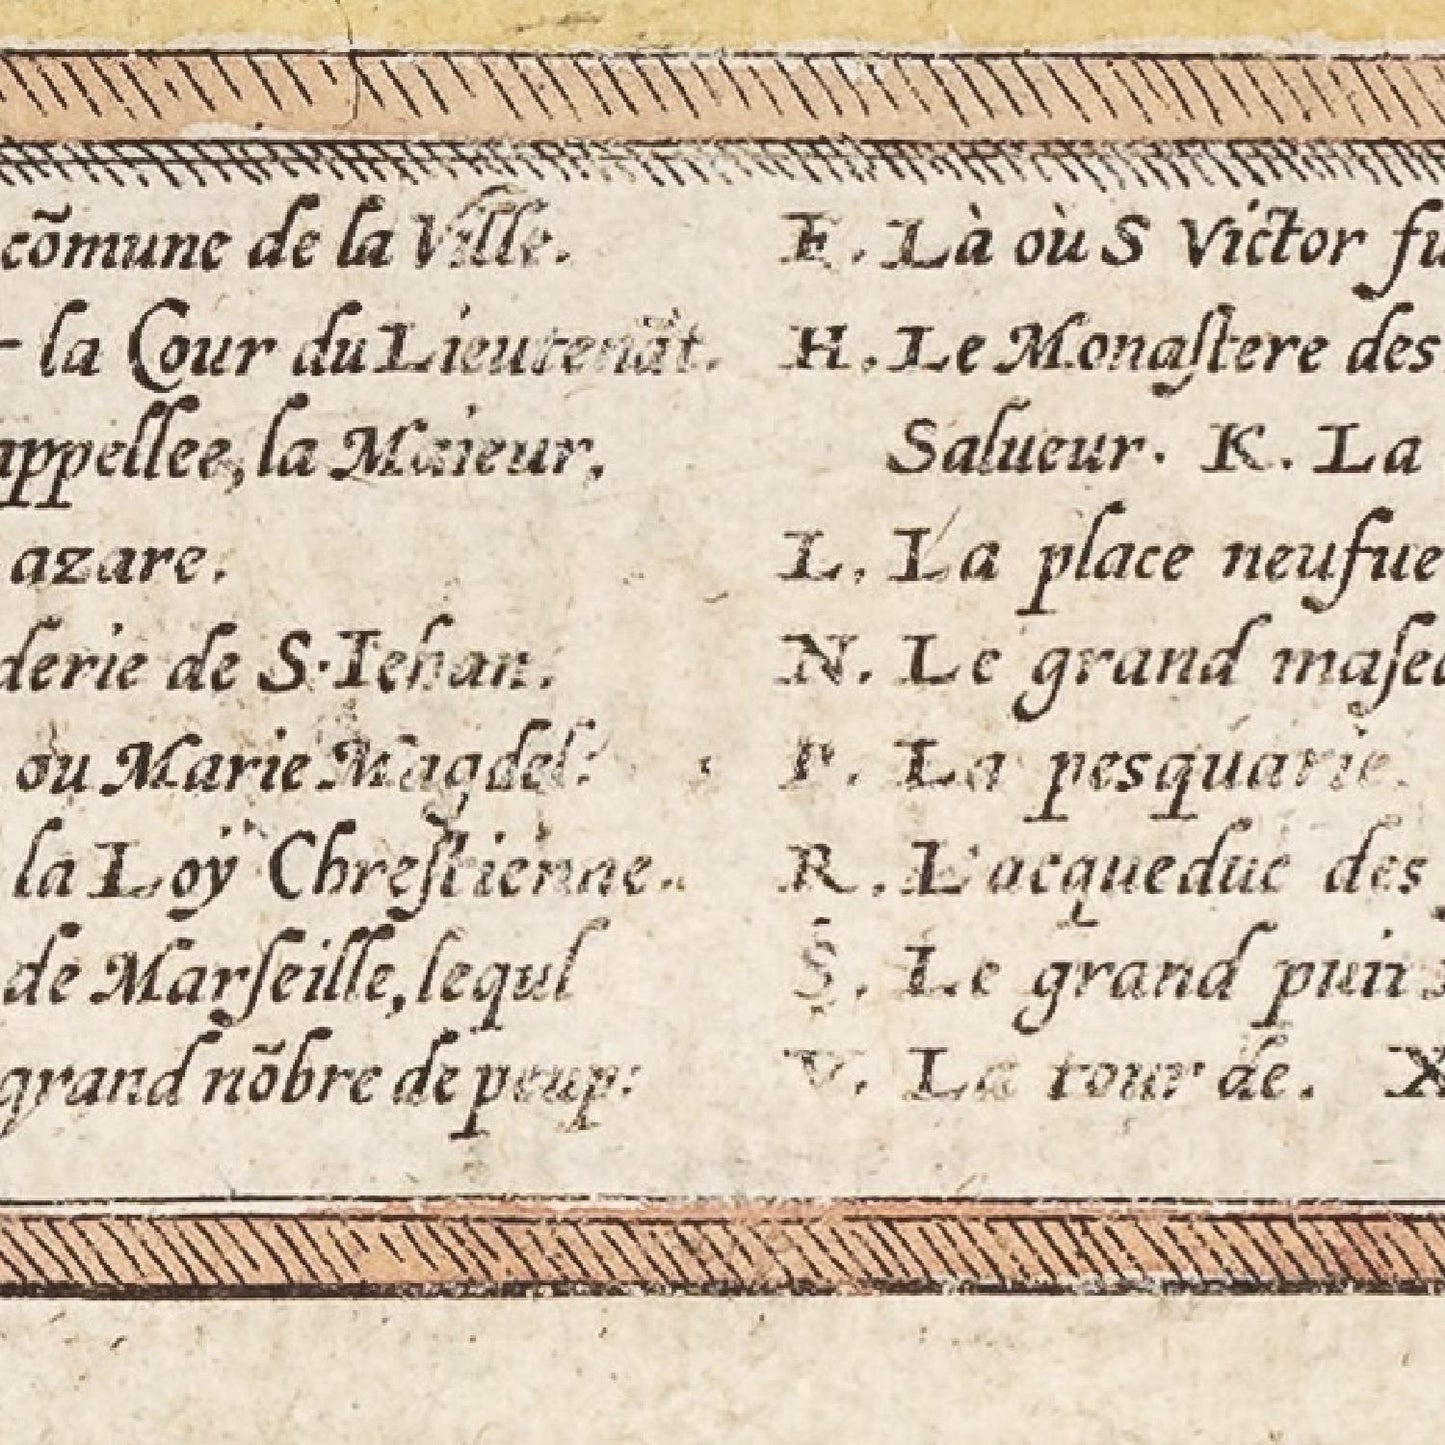 cõmune de la Ville.
la Cour du Lieutenãt.
appellee, la Maieur,
azare.
derie de S. Iehan.
ou Marie Magdel:
la Loÿ Chreſtienne.
de Marſeille, lequl
grand nõbre de peup:
E. Là où S Victor fu
H. Le Monaſtere des
Salueur. K. La
L. La place neufue
N. Le grand maſe
P. La pesquarie.
R. L'acqueduc des
S. Le grand puir
V. La tour de. X